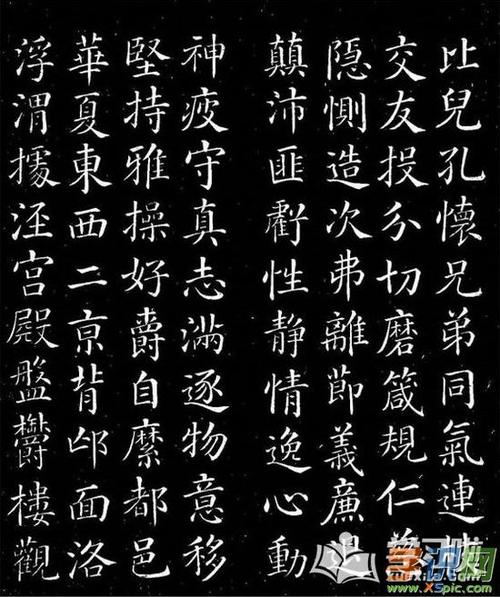 比兒孔懷兄弟同氣連枝
交友投分切磨箴規仁慈
隱惻造次弗離節義廉退
顛沛匪虧性靜情逸心動
神疲守真志滿逐物意移
堅持雅操好爵自縻都邑
華夏東西二亰背邙面洛
浮渭據涇宮殿盤鬱樓觀
学识网
www.XSpic.com